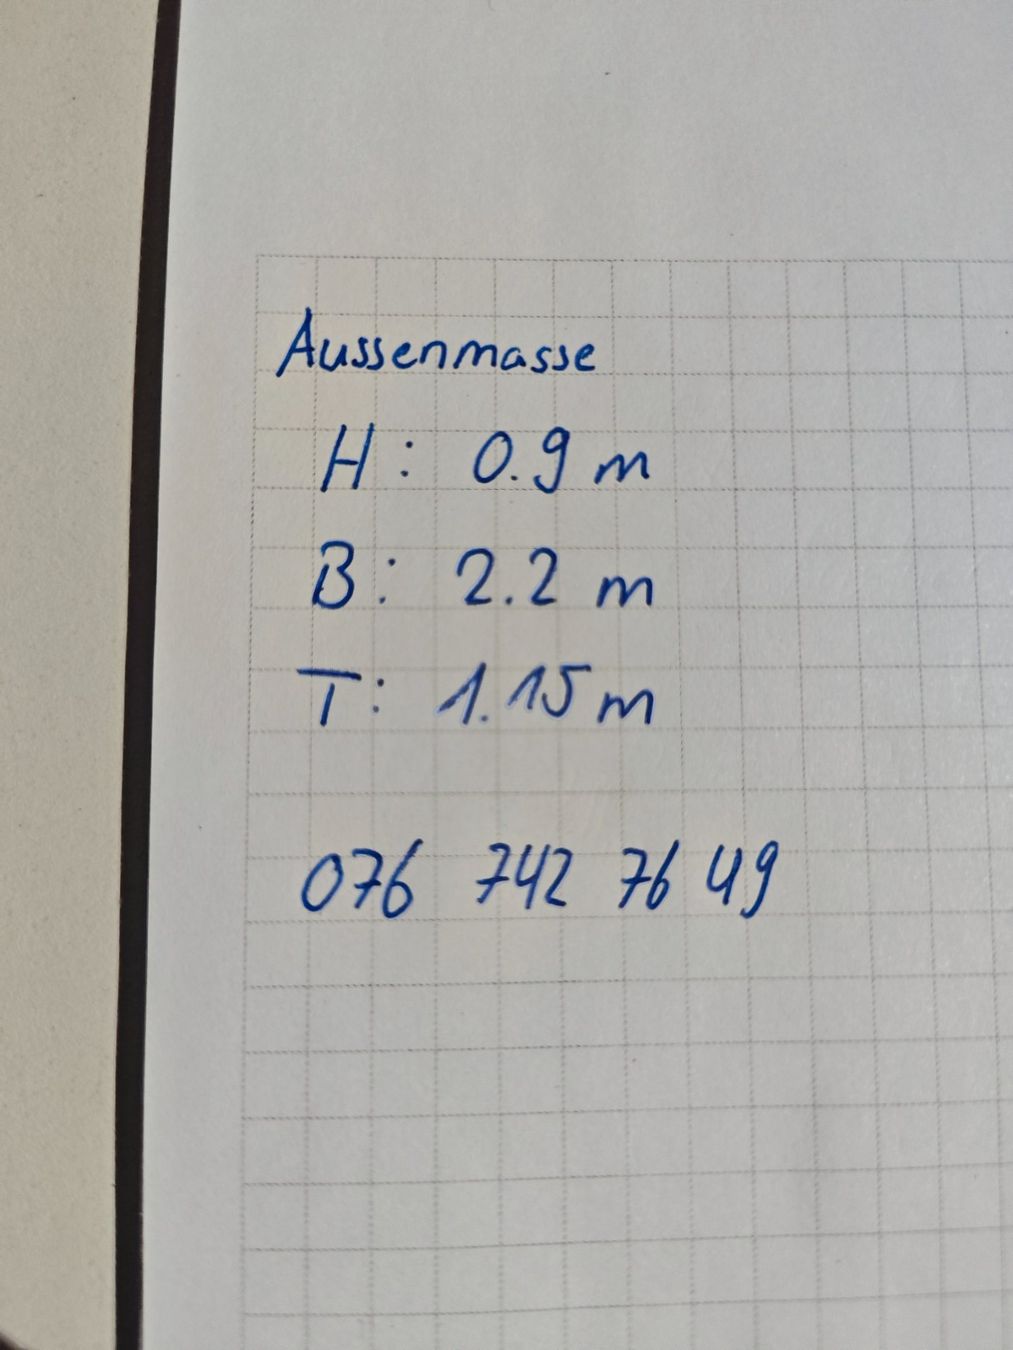 Aussenmasse
H: 0.9 m
B: 2.2 m
T: 1.15 m
076 742 76 49